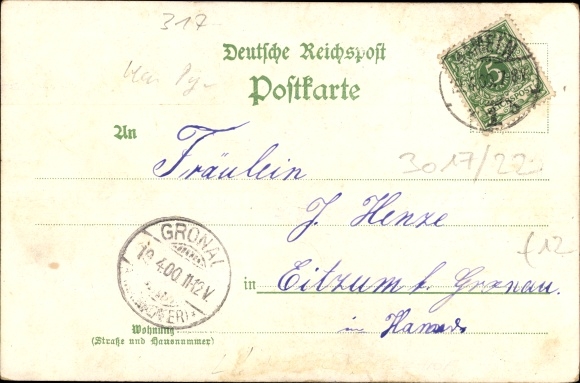 317
Deutsche Reichspost
Postkarte
5
An
Fräulein
3017/22
J. Henze
GRONAU
19.4.00.11-12V.
(HANNOVER)
(12
in Eitzum b. Gronau.
in Hannov.
Wohnung
(Straße und Hausnummer)